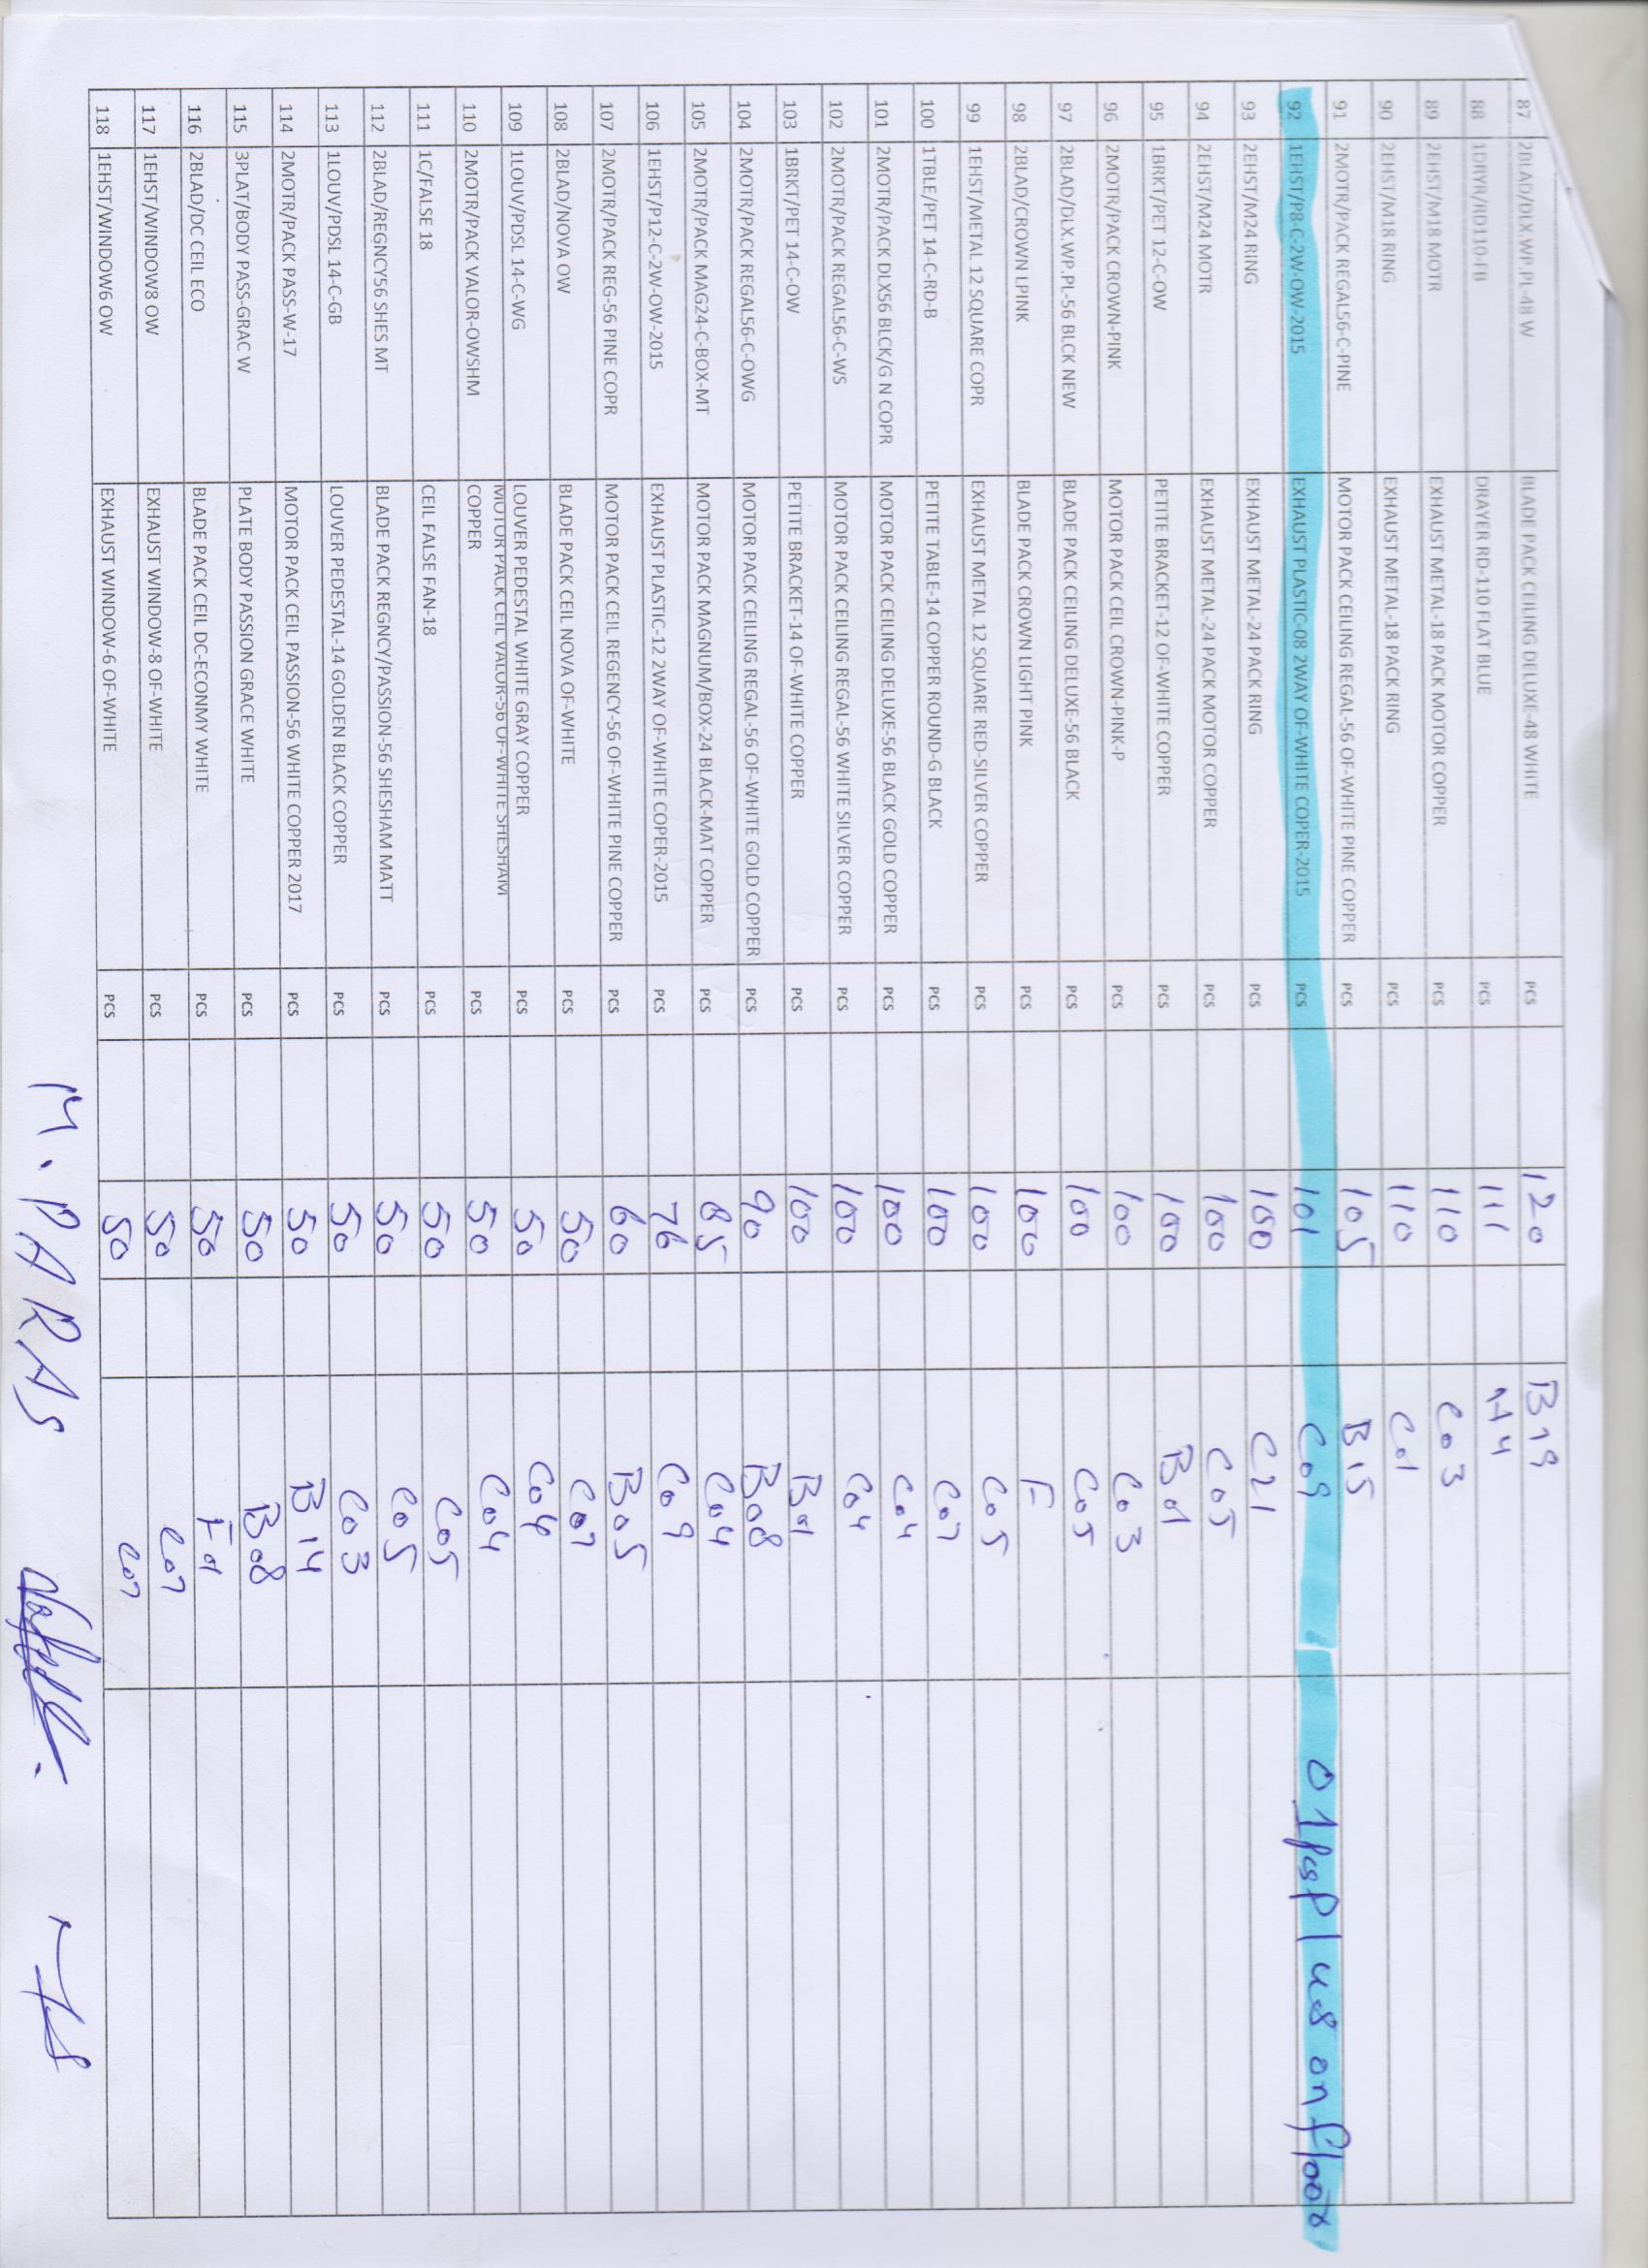 87 2BLAD/DLX.WP.PL-48 W BLADE PACK CEILING DELUXE-48 WHITE PCS 120 B19
88 1DRYR/RD110-FB DRAYER RD-110 FLAT BLUE PCS 111
89 2EHST/M18 MOTR EXHAUST METAL-18 PACK MOTOR COPPER PCS 110 C03
90 2EHST/M18 RING EXHAUST METAL-18 PACK RING PCS 110 C01
91 2MOTR/PACK REGAL56-C-PINE MOTOR PACK CEILING REGAL-56 OF-WHITE PINE COPPER PCS 105 B15
92 1EHST/P8-C-2W-OW-2015 EXHAUST PLASTIC-08 2WAY OF-WHITE COPER-2015 PCS 101 C09 01pcs plus on floor
93 2EHST/M24 RING EXHAUST METAL-24 PACK RING PCS 100 C21
94 2EHST/M24 MOTR EXHAUST METAL-24 PACK MOTOR COPPER PCS 100 C05
95 1BRKT/PET 12-C-OW PETITE BRACKET-12 OF-WHITE COPPER PCS 100 B01
96 2MOTR/PACK CROWN-PINK MOTOR PACK CEIL CROWN-PINK-P PCS 100 C03
97 2BLAD/DLX.WP.PL-56 BLCK NEW BLADE PACK CEILING DELUXE-56 BLACK PCS 100 C05
98 2BLAD/CROWN LPINK BLADE PACK CROWN LIGHT PINK PCS 100 F
99 1EHST/METAL 12 SQUARE COPR EXHAUST METAL 12 SQUARE RED-SILVER COPPER PCS 100 C05
100 1TBLE/PET 14-C-RD-B PETITE TABLE-14 COPPER ROUND-G BLACK PCS 100 C07
101 2MOTR/PACK DLX56 BLCK/G N COPR MOTOR PACK CEILING DELUXE-56 BLACK GOLD COPPER PCS 100 C04
102 2MOTR/PACK REGAL56-C-WS MOTOR PACK CEILING REGAL-56 WHITE SILVER COPPER PCS 100 C04
103 1BRKT/PET 14-C-OW PETITE BRACKET-14 OF-WHITE COPPER PCS 100 B01
104 2MOTR/PACK REGAL56-C-OWG MOTOR PACK CEILING REGAL-56 OF-WHITE GOLD COPPER PCS 90 B08
105 2MOTR/PACK MAG24-C-BOX-MT MOTOR PACK MAGNUM/BOX-24 BLACK-MAT COPPER PCS 85 C04
106 1EHST/P12-C-2W-OW-2015 EXHAUST PLASTIC-12 2WAY OF-WHITE COPER-2015 PCS 76 C09
107 2MOTR/PACK REG-56 PINE COPR MOTOR PACK CEIL REGENCY-56 OF-WHITE PINE COPPER PCS 60 B05
108 2BLAD/NOVA OW BLADE PACK CEIL NOVA OF-WHITE PCS 50 C07
109 1LOUV/PDSL 14-C-WG LOUVER PEDESTAL WHITE GRAY COPPER PCS 50 C04
MOTOR PACK CEIL VALOR-56 OF-WHITE SHESHAM
110 2MOTR/PACK VALOR-OWSHM COPPER PCS 50 C04
111 1C/FALSE 18 CEIL FALSE FAN-18 PCS 50 C05
112 2BLAD/REGNCY56 SHES MT BLADE PACK REGNCY/PASSION-56 SHESHAM MATT PCS 50 C05
113 1LOUV/PDSL 14-C-GB LOUVER PEDESTAL-14 GOLDEN BLACK COPPER PCS 50 C03
114 2MOTR/PACK PASS-W-17 MOTOR PACK CEIL PASSION-56 WHITE COPPER 2017 PCS 50 B14
115 3PLAT/BODY PASS-GRAC W PLATE BODY PASSION GRACE WHITE PCS 50 B08
116 2BLAD/DC CEIL ECO BLADE PACK CEIL DC-ECONMY WHITE PCS 50 F01
117 1EHST/WINDOW8 OW EXHAUST WINDOW-8 OF-WHITE PCS 50 C07
118 1EHST/WINDOW6 OW EXHAUST WINDOW-6 OF-WHITE PCS 50 C07
M. PARAS